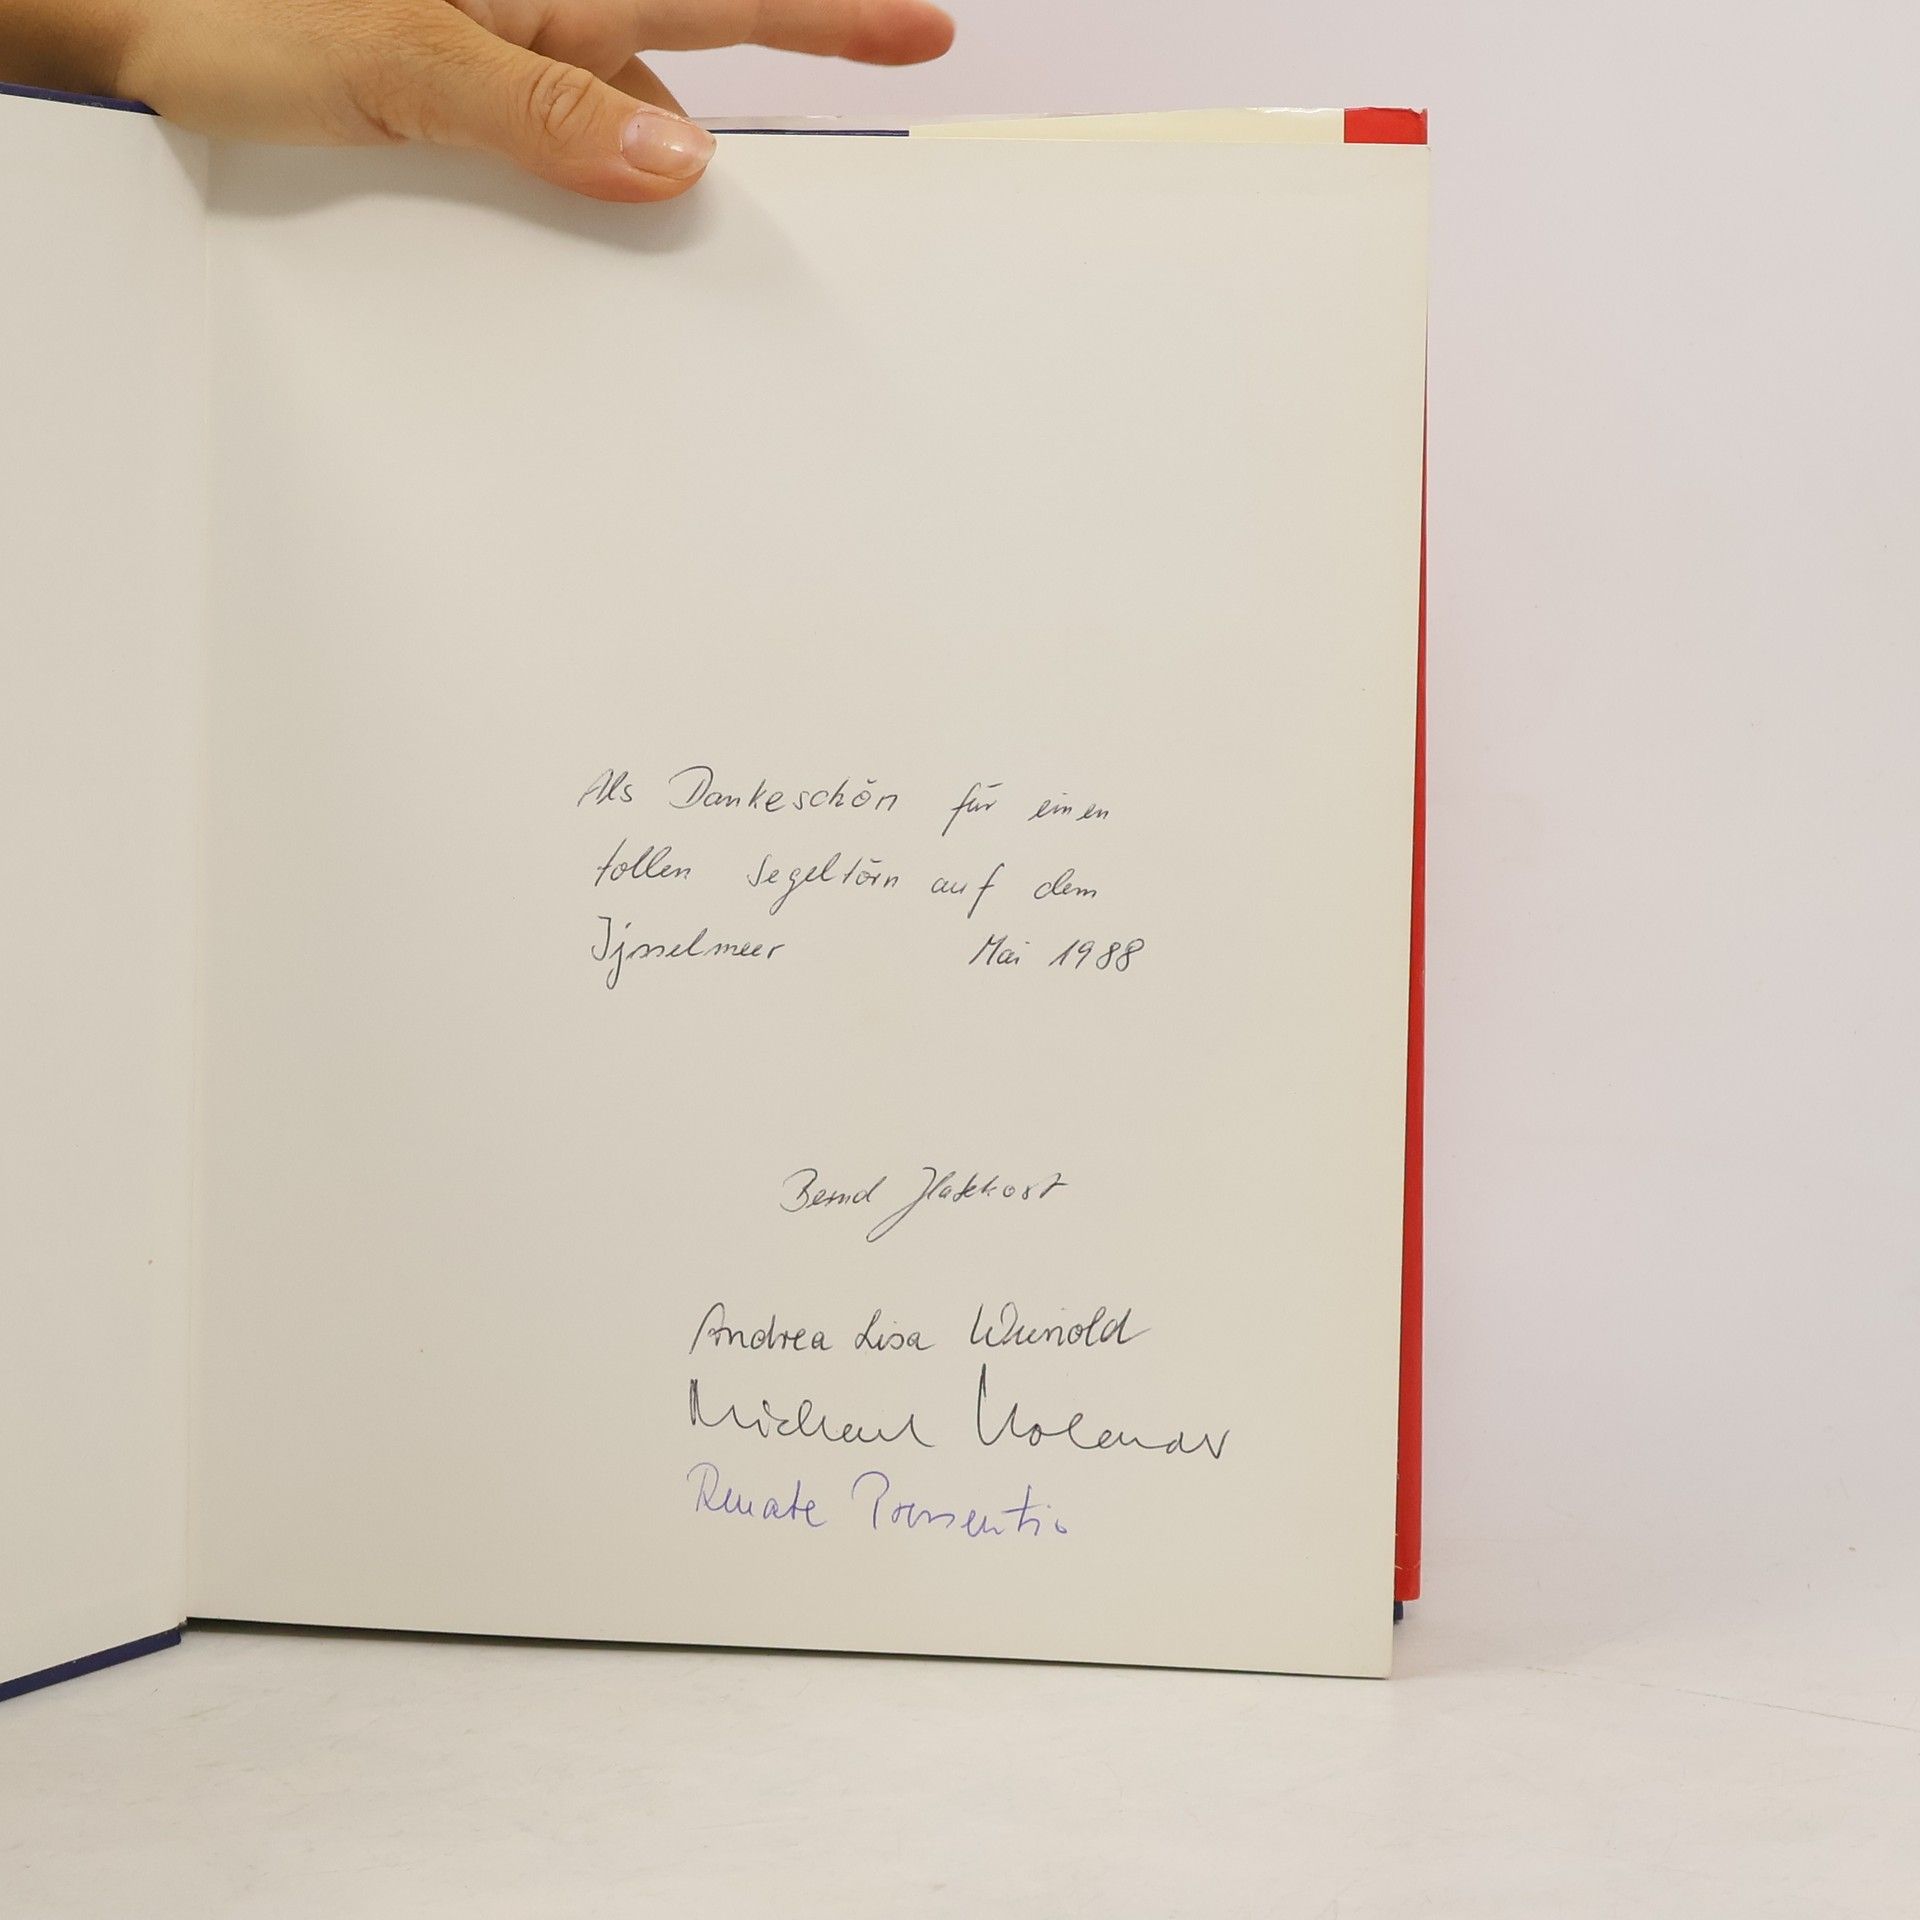 Als Dankeschön für einen
tollen Segeltörn auf dem
Ijsselmeer Mai 1988
Bernd
Andrea Lisa
Michael
Renate